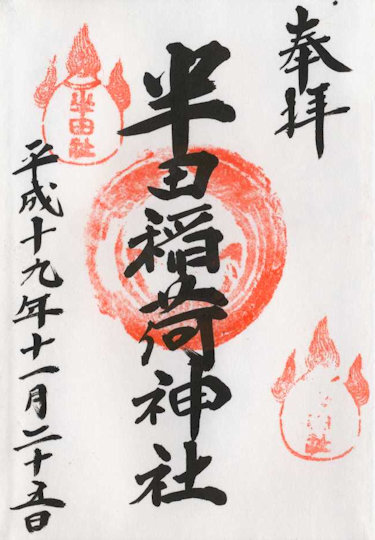 奉拝
半田稲荷神社
平成十九年十一月二十五日
半田社